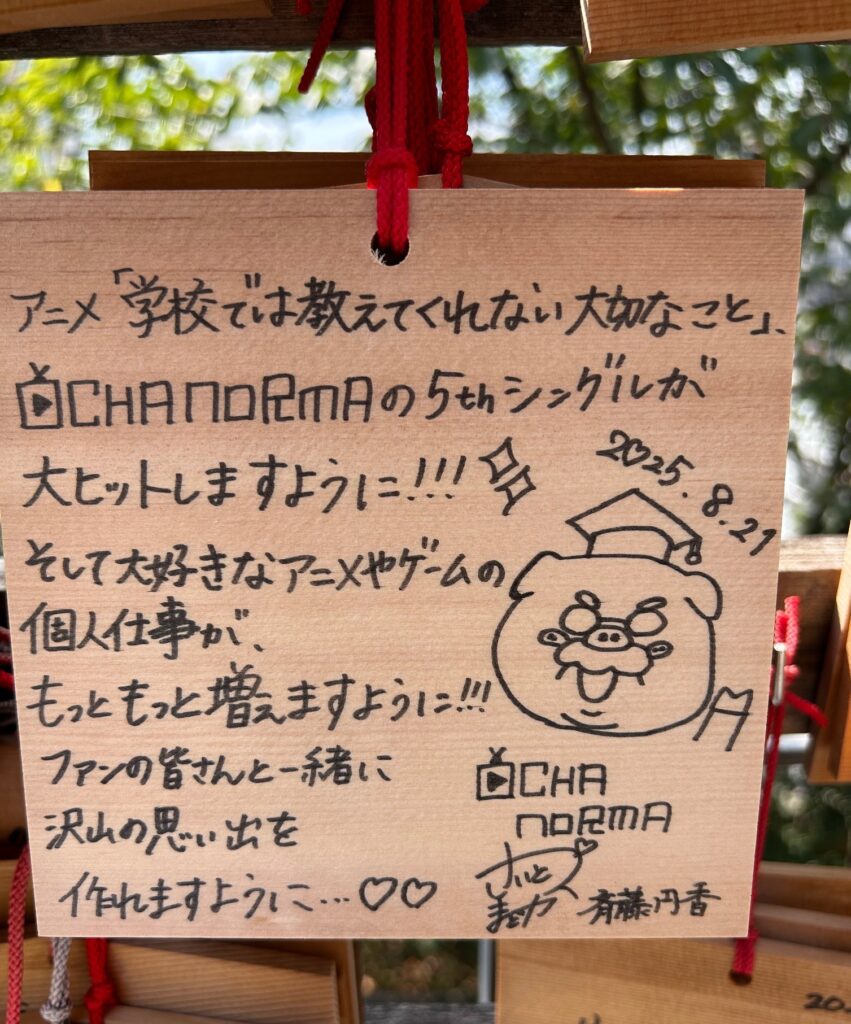 アニメ「学校では教えてくれない大切なこと」、
OCHA NORMAの5thシングルが
大ヒットしますように!!!
2025.8.21
そして大好きなアニメやゲームの
個人仕事が、
もっともっと増えますように!!!
ファンの皆さんと一緒に
沢山の思い出を
作れますように…♡♡
OCHA
NORMA
さいと
まどか
斉藤円香